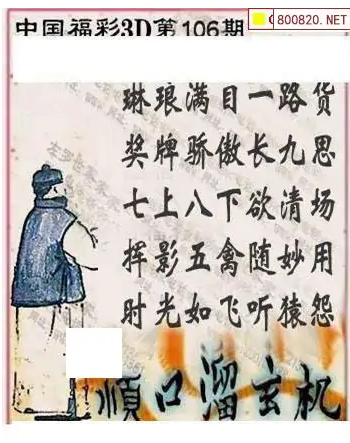 800820.NET
中国福彩3D第106期
琳琅满目一路货
奖牌骄傲长九思
七上八下欲清场
挥影五禽随妙用
时光如飞听猿怨
顺口溜玄机